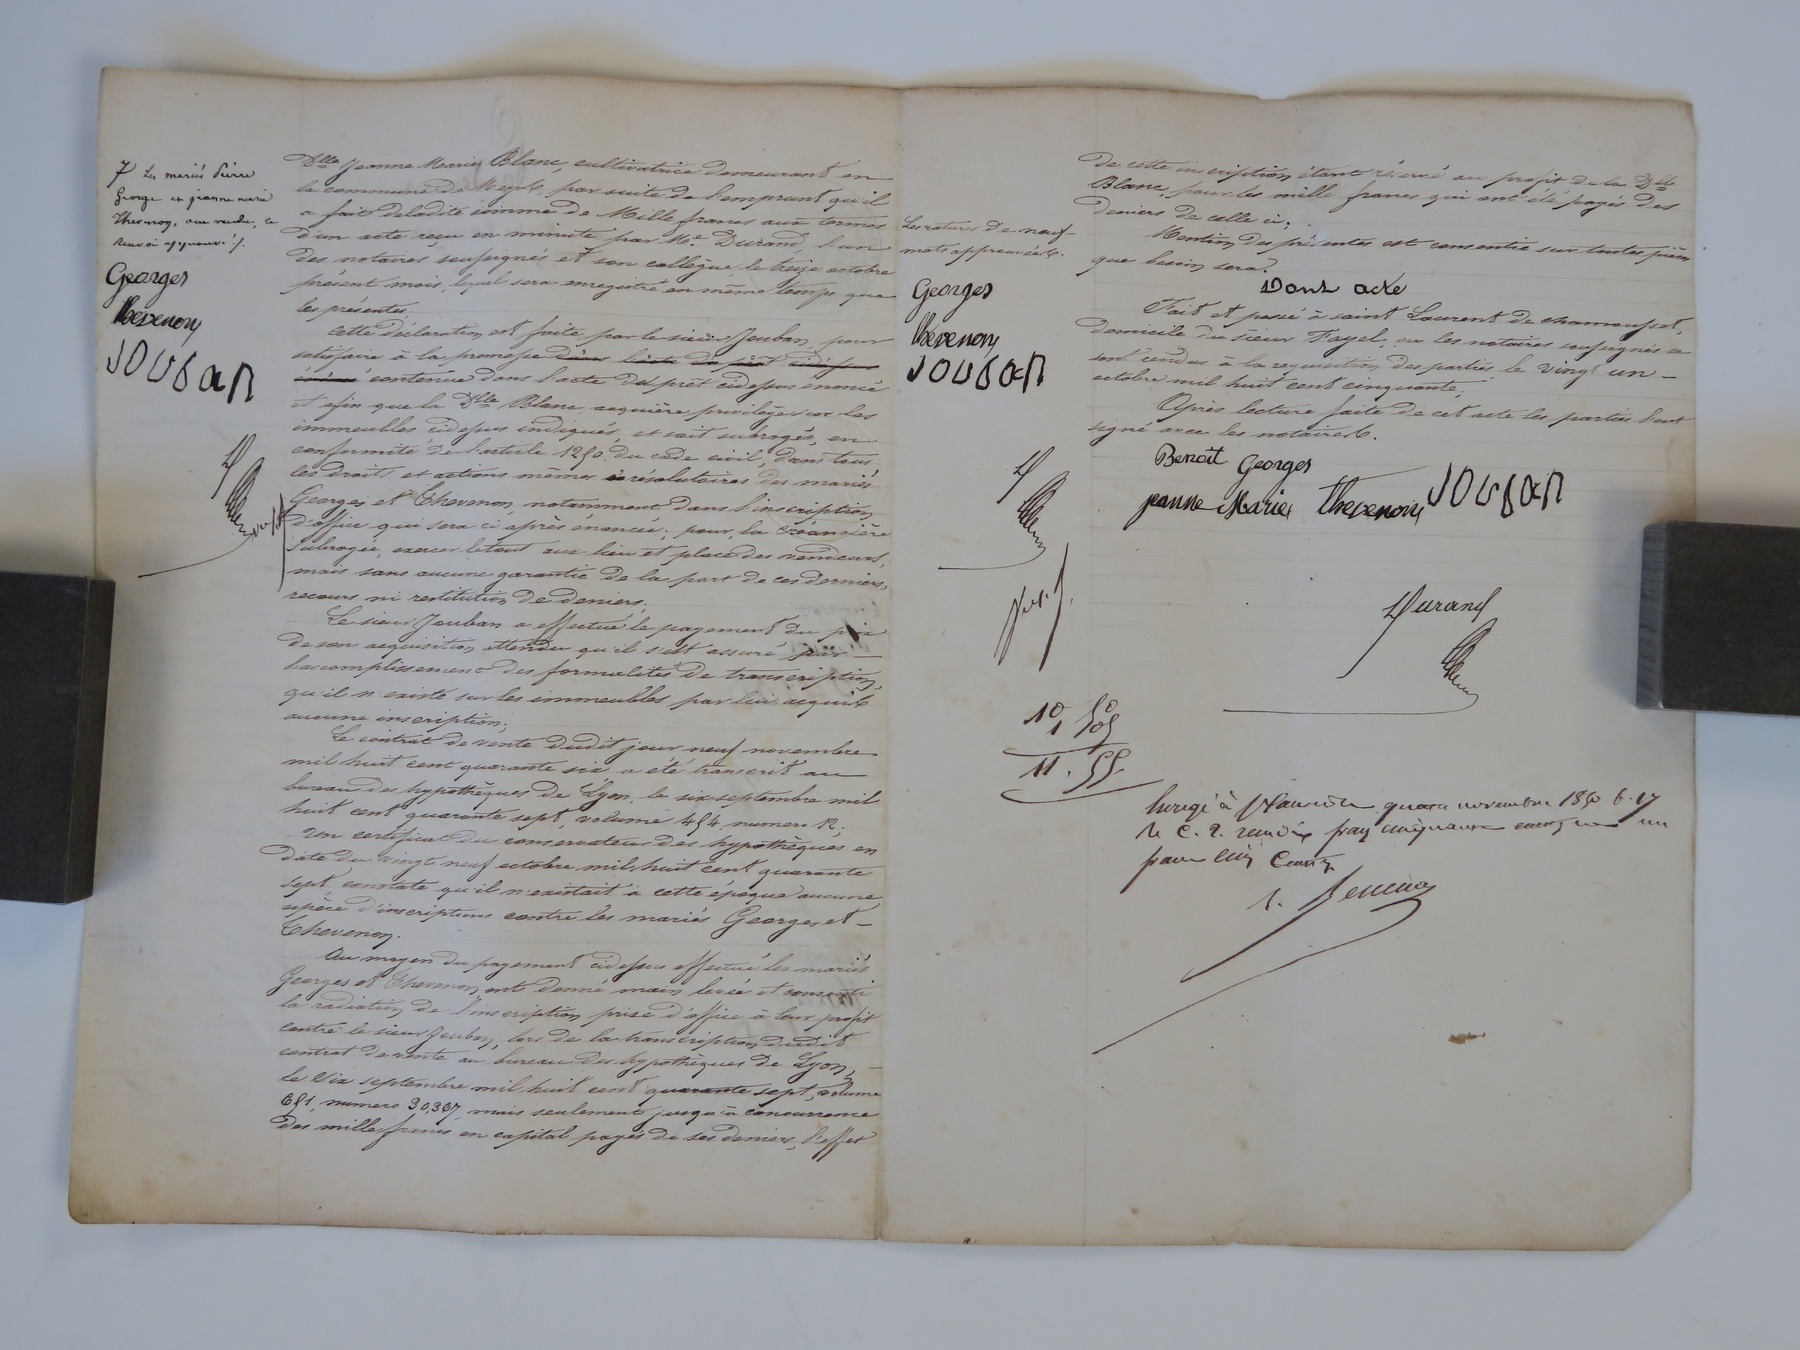 7 Les mariés Pierre
George et jeanne marie
thevenon, aux vendu, ce
renvoi approuvé ./.
Georges
thévenon
JOUBAN
Dlle Jeanne Marie Blanc, cultivatrice demeurant en
la commune de Meys, par suite de l'emprunt qu'il
a fait deladite somme de Mille francs aux termes
d'un acte reçu en minute par Me Durand, l'un
des notaires soussignés et son collègue le treize octobre
présent mois, lequel sera enregistré en même temps que
les présentes;
Cette déclaration est faite par le sieur Jouban, pour
satisfaire à la promesse
contenue dans l'acte de prêt cidessus énoncé
et afin que la Dlle Blanc acquière privilège sur les
immeubles cidessus indiqués, et soit subrogée, en
conformité de l'article 1250 du code civil, dans tous
les droits et actions mêmes résolutoires des mariés
Georges et Thevenon, notamment dans l'inscription
d'office qui sera ci après énoncée; pour, la créancière
subrogée, exercer letout aux lieu et place des vendeurs,
mais sans aucune garantie de la part de ces derniers,
recours ni restitution de deniers;
Le sieur Jouban a effectué le payement du prix
de son acquisition attendu qu'il s'est assuré par
laccomplissement des formalités de transcription,
qu'il n'existe sur les immeubles par lui acquis
aucune inscription;
Le contrat de vente dudit jour neuf novembre
mil huit cent quarante six a été transcrit au
bureau des hypothèques de Lyon, le six septembre mil
huit cent quarante sept, volume 454, numero 12;
Un certificat du conservateur des hypothèques en
date du vingt neuf octobre mil huit cent quarante
sept, constate qu'il n'existait à cette époque aucune
espèce d'inscriptions contre les mariés Georges et
Thevenon.
Au moyen du payement cidessus effectué les mariés
Georges et Thevenon, ont donné main levée et consenti
la radiation de l'inscription prise d'office à leur profit
contre le sieur Jouban, lors de la transcription dudit
contrat de vente au bureau des hypothèques de Lyon,
le six septembre mil huit cent quarante sept, volume
651, numero 30,367, mais seulement jusqu'à concurrence
des mille francs en capital payés de ses deniers, l'effet
Les ratures de neuf
mots approuvées.
Georges
thévenon
JOUBAN
10 50
1 05
11 . 55
de cette inscription étant réservé au profit de la Dlle
Blanc, pour les mille francs qui ont été payés des
deniers de celle ci;
Mention des présentes est consentie sur toutes pièces
que besoin sera.
Dont acte
Fait et passé à saint Laurent de chamousset,
domicile du sieur Fayel, ou les notaires soussignés se
sont rendus à la requisition des parties, le vingt un
octobre mil huit cent cinquante;
Après lecture faite de cet acte les parties l'ont
signé avec les notaires.
Benoit Georges
jeanne Marie thevenon JOUBAN
Durand
novembre 1850 f. 17